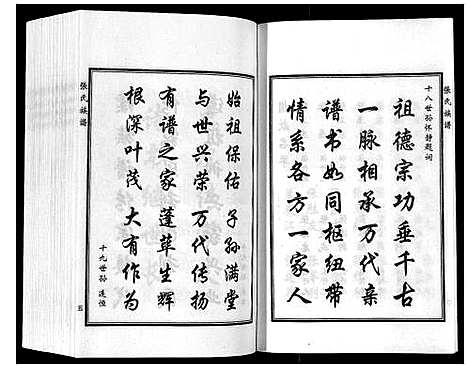 張氏族譜
十八世孫怀静題詞
祖德宗功垂千古
一脉相承万代亲
譜书如同枢纽带
情系各方一家人
始祖保佑 子孙满堂
与世兴荣 万代传扬
有譜之家 蓬荜生辉
根深叶茂 大有作为
十九世孙 连恒
張氏族譜
五